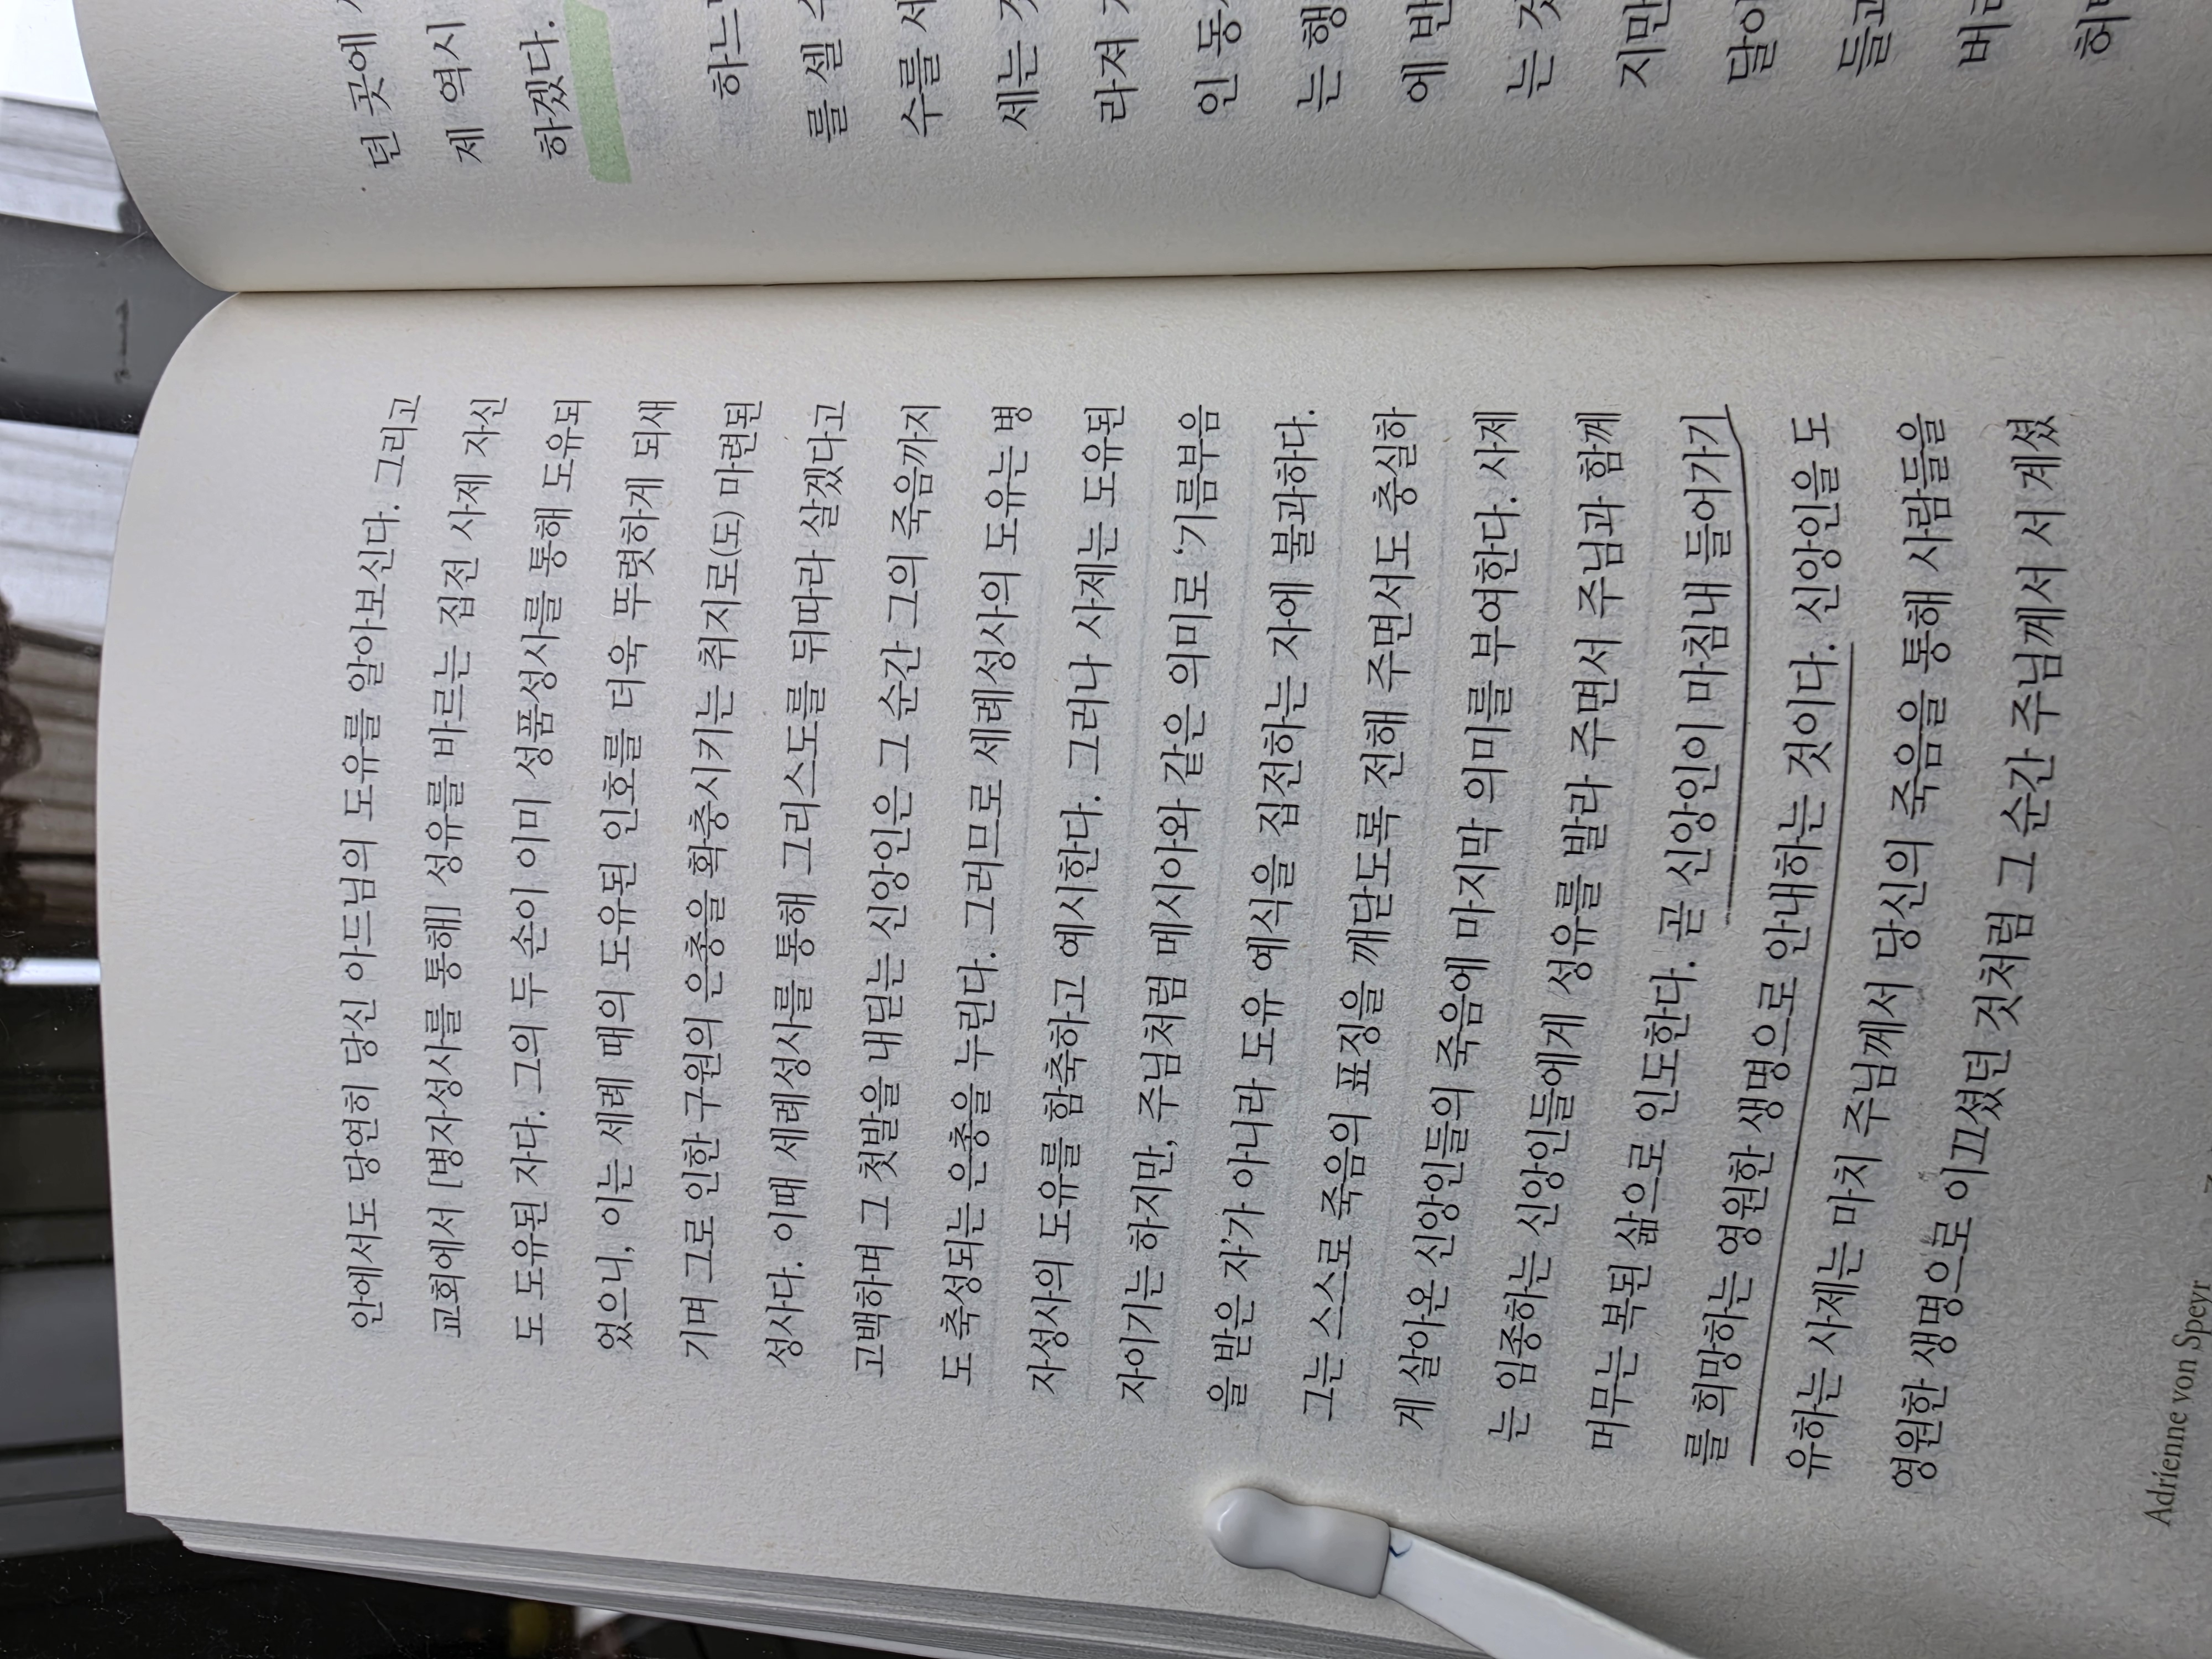 안에서도 당연히 당신 아드님의 도유를 알아보신다. 그리고
교회에서 [병자성사를 통해] 성유를 바르는 집전 사제 자신
도 도유된 자다. 그의 두 손이 이미 성품성사를 통해 도유되
었으니, 이는 세례 때의 도유된 인호를 더욱 뚜렷하게 되새
기며 그로 인한 구원의 은총을 확충시키는 취지로(도) 마련된
성사다. 이때 세례성사를 통해 그리스도를 뒤따라 살겠다고
고백하며 그 첫발을 내딛는 신앙인은 그 순간 그의 죽음까지
도 축성되는 은총을 누린다. 그러므로 세례성사의 도유는 병
자성사의 도유를 함축하고 예시한다. 그러나 사제는 도유된
자이기는 하지만, 주님처럼 메시아와 같은 의미로 ‘기름부음
을 받은 자’가 아니라 도유 예식을 집전하는 자에 불과하다.
그는 스스로 죽음의 표징을 깨닫도록 전해 주면서도 충실하
게 살아온 신앙인들의 죽음에 마지막 의미를 부여한다. 사제
는 임종하는 신앙인들에게 성유를 발라 주면서 주님과 함께
머무는 복된 삶으로 인도한다. 곧 신앙인이 마침내 들어가기
를 희망하는 영원한 생명으로 안내하는 것이다. 신앙인을 도
유하는 사제는 마치 주님께서 당신의 죽음을 통해 사람들을
영원한 생명으로 이끄셨던 것처럼 그 순간 주님께서 서 계셨
Adrienne von Speyr
던 곳에
제 역시
하겠다.
하느
를 셀
수를 세
세는
라져
인 동
는 행
에 반
는 것
지만
달이
들과
버리
허